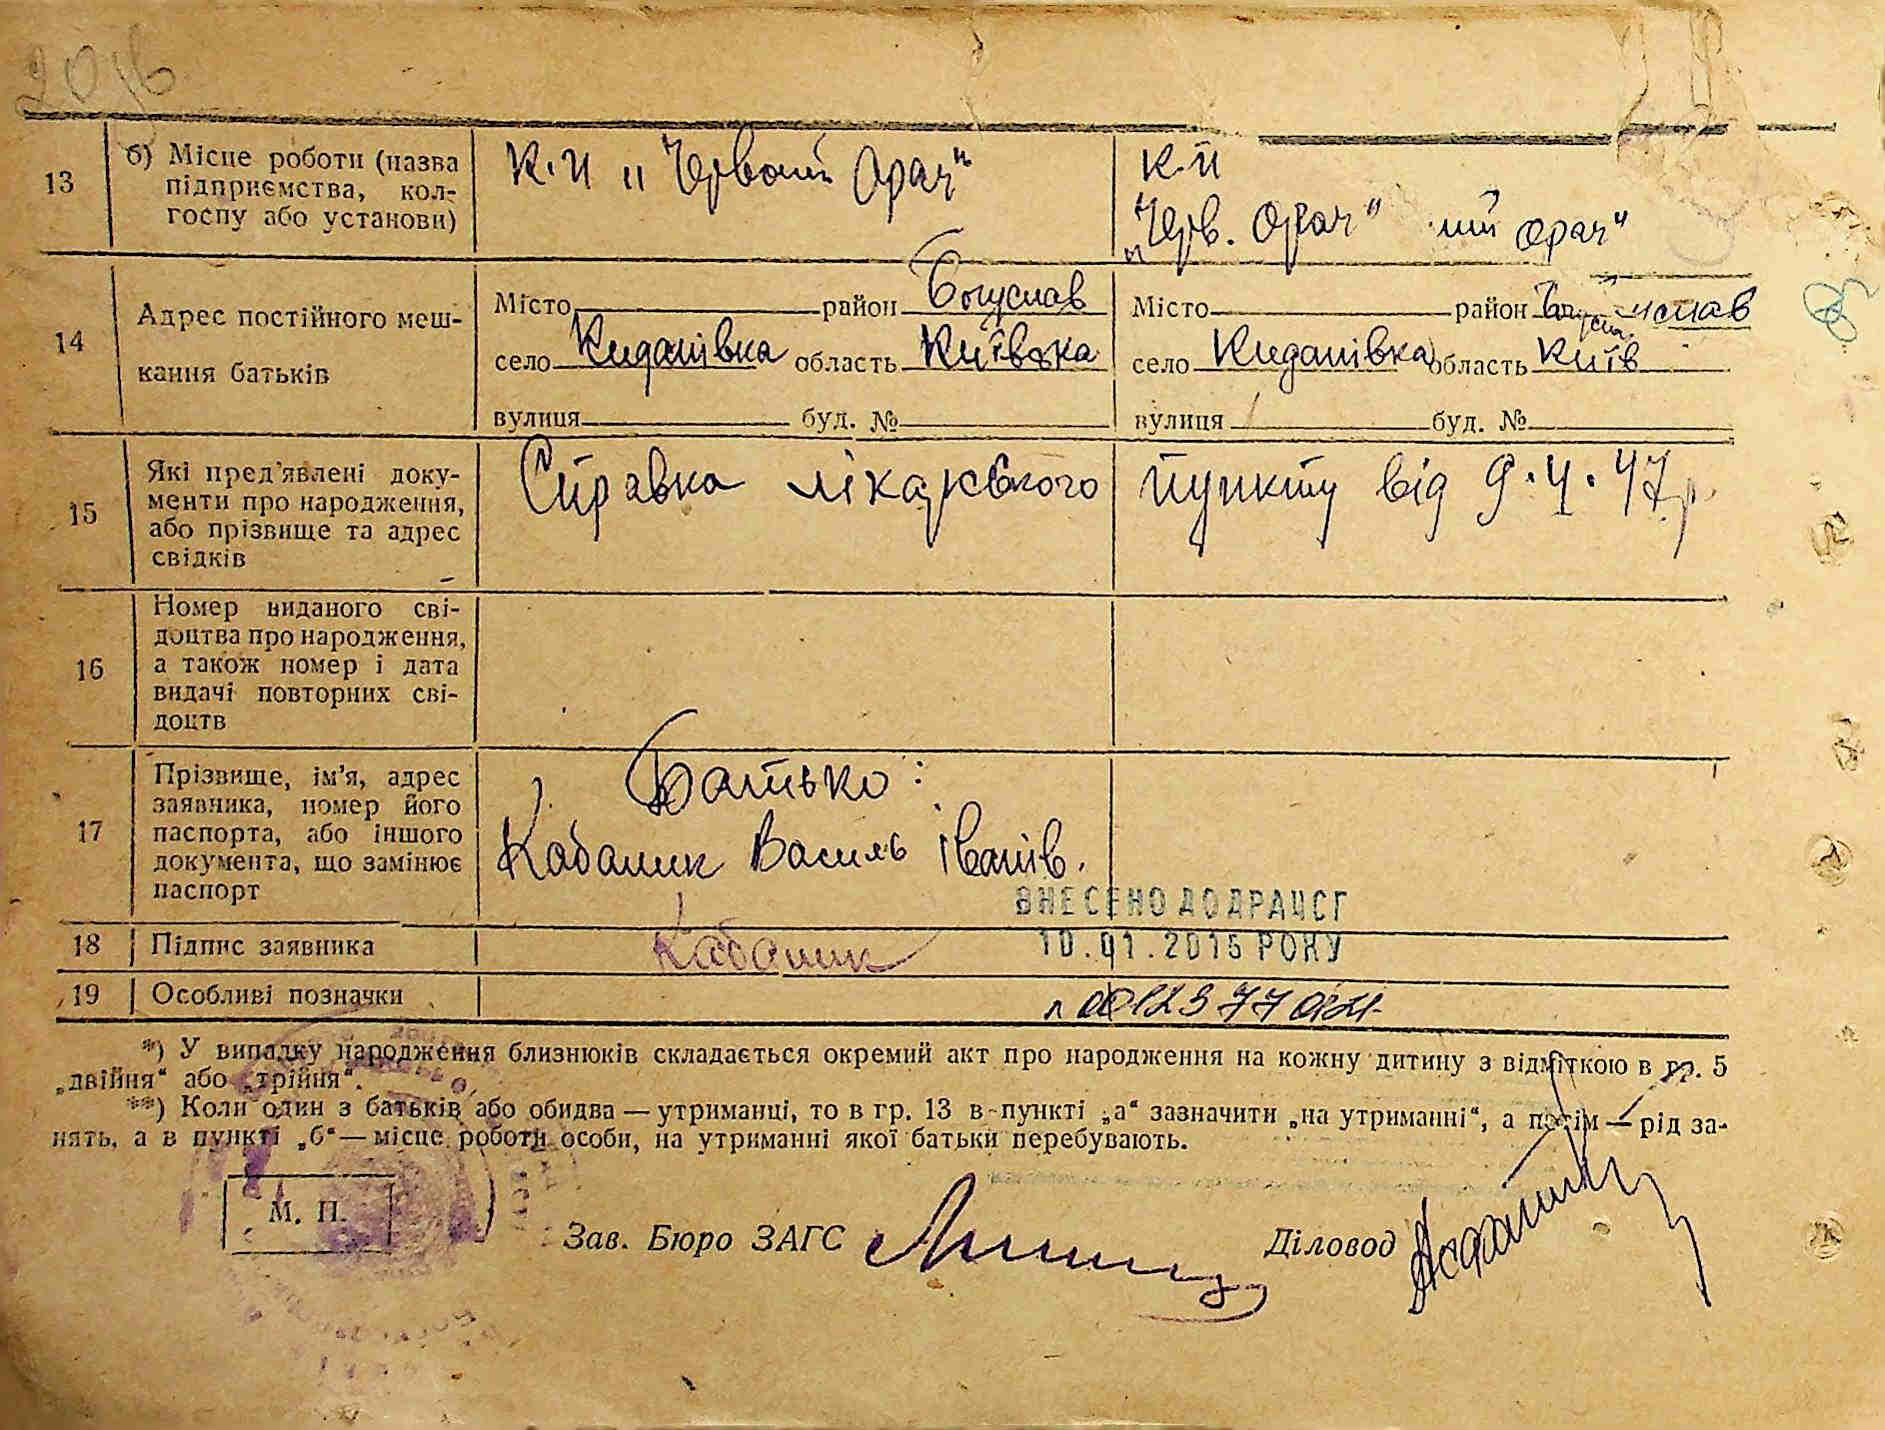 13
б) Місце роботи (назва
підприємства, кол-
госпу або установи)
К-п „Червоний Орач“
К-п
„Черв. Орач“ ий орач“
14
Адрес постійного меш-
кання батьків
Місто район Богуслав
село Киданівка область Київська
вулиця буд. №
Місто район Богуслав
село Киданівка область Київ
вулиця буд. №
15
Які пред'явлені доку-
менти про народження,
або прізвище та адрес
свідків
Справка лікарського пункту від 9.4.47р.
16
Номер виданого сві-
доцтва про народження,
а також номер і дата
видачі повторних сві-
доцтв
17
Прізвище, ім'я, адрес
заявника, номер його
паспорта, або іншого
документа, що замінює
паспорт
Батько:
Кабаник Василь Іванів.
ВНЕСЕНО ДО ДРАЦСГ
18
Підпис заявника
Кабаник
10.01.2015 РОКУ
19
Особливі позначки
*) У випадку народження близнюків складається окремий акт про народження на кожну дитину з відміткою в гр. 5
„двійня“ або „трійня“.
**) Коли один з батьків або обидва — утриманці, то в гр. 13 в пункті „а“ зазначити „на утриманні“, а потім — рід за-
нять, а в пункті „б“ — місце роботи особи, на утриманні якої батьки перебувають.
М. П.
Зав. Бюро ЗАГС
Діловод